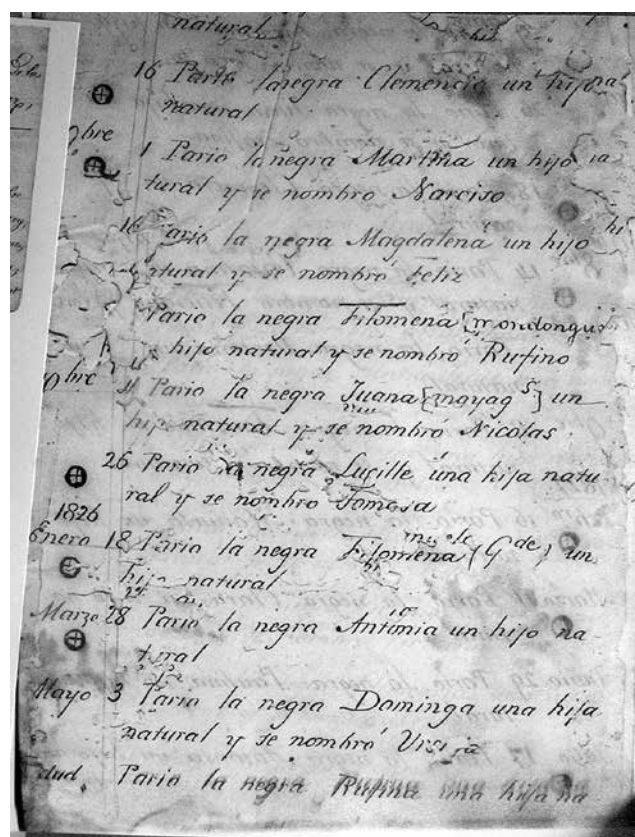 natural
16 Pario la negra Clemencia un hijo
natural
9bre
1 Pario la negra Martina un hijo na
tural y se nombró Narciso
16 Pario la negra Magdalena un hijo
natural y se nombró Feliz
Pario la negra Filomena
hijo natural y se nombró Rufino
bre 11 Pario la negra Juana un
hijo natural y se nombró Nicolas
26 Pario la negra Lucille una hija natu
ral y se nombro Tomosa
1826
Enero 18 Pario la negra Filomena (Gde) un
hijo natural
Marzo 28 Pario la negra Antonia un hijo na-
tural
Mayo 3 Pario la negra Dominga una hija
natural y se nombró
Pario la negra Rufina una hija na